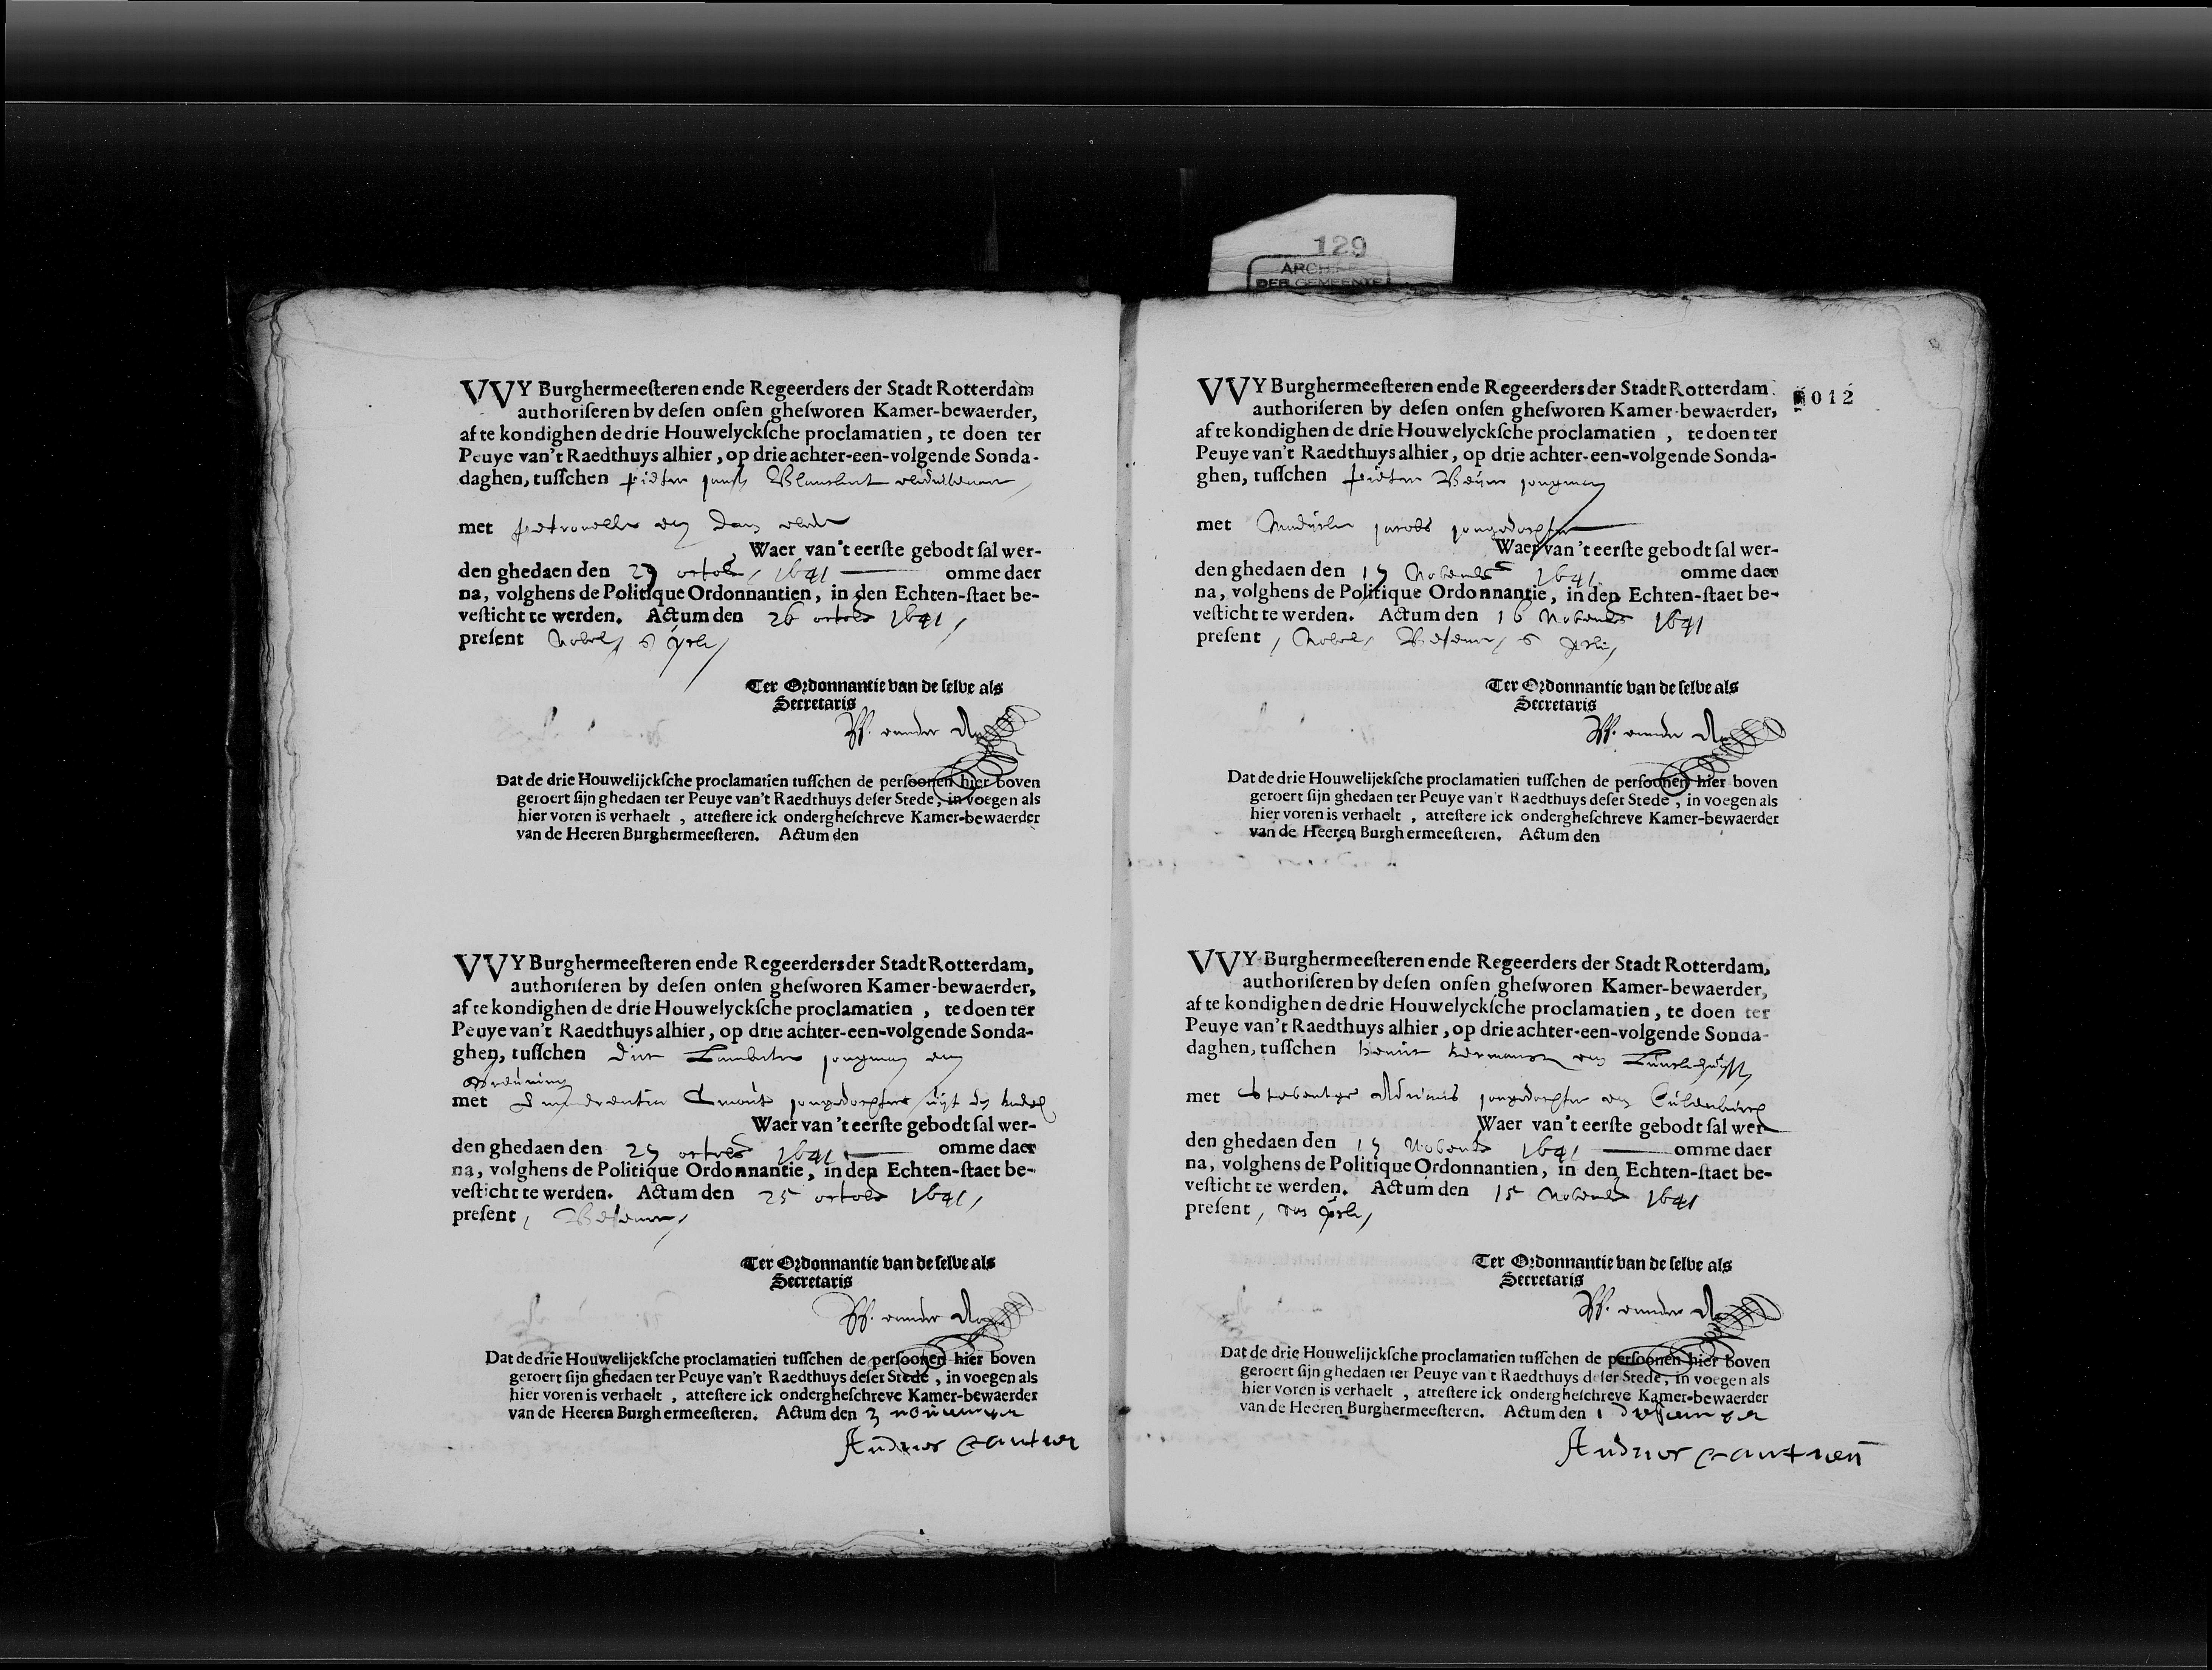 129
ARCHIEF
DER GEMEENTE
VVY Burghermeeſteren ende Regeerders der Stadt Rotterdam
authoriſeren by deſen onſen gheſworen Kamer-bewaerder,
af te kondighen de drie Houwelyckſche proclamatien, te doen ter
Peuye van't Raedthuys alhier, op drie achter-een-volgende Sonda-
daghen, tuſſchen pieter jansz
met petronella
Waer van't eerſte gebodt ſal wer-
den ghedaen den 27 octob 1641 omme daer
na, volghens de Politique Ordonnantien, in den Echten-ſtaet be-
veſticht te werden. Actum den 26 octob 1641
preſent Nobel
Ter Ordonnantie van de ſelve als
Secretaris
W. vander
Dat de drie Houwelijckſche proclamatien tuſſchen de perſoonen hier boven
geroert ſijn ghedaen ter Peuye van't Raedthuys deſer Stede, in voegen als
hier voren is verhaelt, atteſtere ick ondergheſchreve Kamer-bewaerder
van de Heeren Burghermeeſteren. Actum den
VVY Burghermeeſteren ende Regeerders der Stadt Rotterdam,
authoriſeren by deſen onſen gheſworen Kamer-bewaerder,
af te kondighen de drie Houwelyckſche proclamatien, te doen ter
Peuye van't Raedthuys alhier, op drie achter-een-volgende Sonda-
ghen, tuſſchen jongman van
met jongedochter uijt den
Waer van't eerſte gebodt ſal wer-
den ghedaen den 27 octob 1641 omme daer
na, volghens de Politique Ordonnantie, in den Echten-ſtaet be-
veſticht te werden. Actum den 25 octob 1641,
preſent,
Ter Ordonnantie van de ſelve als
Secretaris
W. vander
Dat de drie Houwelijckſche proclamatien tuſſchen de perſoonen hier boven
geroert ſijn ghedaen ter Peuye van't Raedthuys deſer Stede, in voegen als
hier voren is verhaelt, atteſtere ick ondergheſchreve Kamer-bewaerder
van de Heeren Burghermeeſteren. Actum den 3
Andries
012
VVY Burghermeeſteren ende Regeerders der Stadt Rotterdam
authoriſeren by deſen onſen gheſworen Kamer-bewaerder,
af te kondighen de drie Houwelyckſche proclamatien, te doen ter
Peuye van't Raedthuys alhier, op drie achter-een-volgende Sonda-
ghen, tuſſchen pieter jongman
met jacobs jongedochter
Waer van't eerſte gebodt ſal wer-
den ghedaen den 17 Novemb 1641 omme daer
na, volghens de Politique Ordonnantie, in den Echten-ſtaet be-
veſticht te werden. Actum den 16 Novemb 1641
preſent, Nobel
Ter Ordonnantie van de ſelve als
Secretaris
W. vander
Dat de drie Houwelijckſche proclamatien tuſſchen de perſoonen hier boven
geroert ſijn ghedaen ter Peuye van't Raedthuys deſer Stede, in voegen als
hier voren is verhaelt, atteſtere ick ondergheſchreve Kamer-bewaerder
van de Heeren Burghermeeſteren. Actum den
VVY Burghermeeſteren ende Regeerders der Stadt Rotterdam,
authoriſeren by deſen onſen gheſworen Kamer-bewaerder,
af te kondighen de drie Houwelyckſche proclamatien, te doen ter
Peuye van't Raedthuys alhier, op drie achter-een-volgende Sonda-
daghen, tuſſchen
met jongedochter van
Waer van't eerſte gebodt ſal wer
den ghedaen den 17 Novemb 1641 omme daer
na, volghens de Politique Ordonnantien, in den Echten-ſtaet be-
veſticht te werden. Actum den 15 Novemb 1641
preſent,
Ter Ordonnantie van de ſelve als
Secretaris
W. vander
Dat de drie Houwelijckſche proclamatien tuſſchen de perſoonen hier boven
geroert ſijn ghedaen ter Peuye van't Raedthuys deſer Stede, in voegen als
hier voren is verhaelt, atteſtere ick ondergheſchreve Kamer-bewaerder
van de Heeren Burghermeeſteren. Actum den 1
Andries